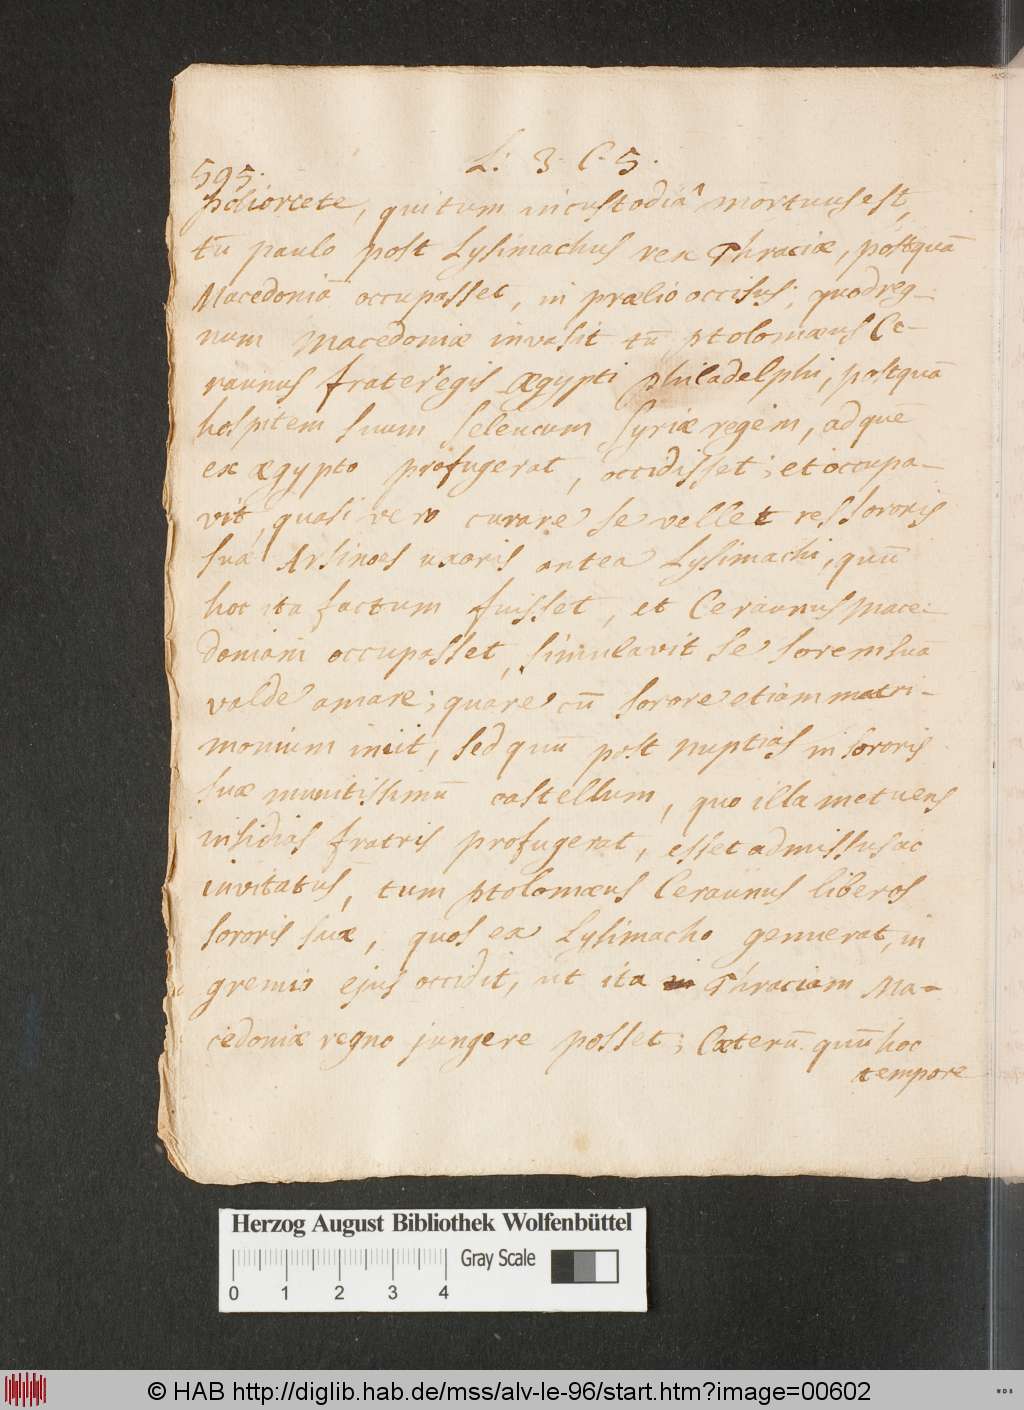 L. 3. C. 5.
595.
Poliorcete, qui tum in custodiâ mortuus est,
tū paulo post Lysimachus rex Thraciæ, postquā
Macedoniā occupasset, in prælio occisus; quod reg-
num Macedoniæ invasit tū Ptolomæus Ce-
raunus frater regis Ægypti Philadelphi, postquā
hospitem suum Seleucum Syriæ regem, ad quē
ex ægypto profugerat, occidisset; et occupa-
vit, quasi vero curare se vellet res sororis
suæ Arsinoes uxoris antea Lysimachi, quū
hoc ita factum fuisset, et Ceraunus Mace-
doniam occupasset, simulavit se sorem suā
valde amare; quare cū sorore etiam matri-
monium iniit, sed quū post nuptias in sororis
suæ munitissimū castellum, quo illa metuens
insidias fratris profugerat, esset admissus ac
invitatus, tum Ptolomæus Ceraunus liberos
sororis suæ, quos ex Lysimacho genuerat, in
gremio ejus occidit, ut ita Thraciam Ma-
cedoniæ regno jungere posset; Cæterū quū hoc
tempore
Herzog August Bibliothek Wolfenbüttel
Gray Scale
0 1 2 3 4
© HAB http://diglib.hab.de/mss/alv-le-96/start.htm?image=00602